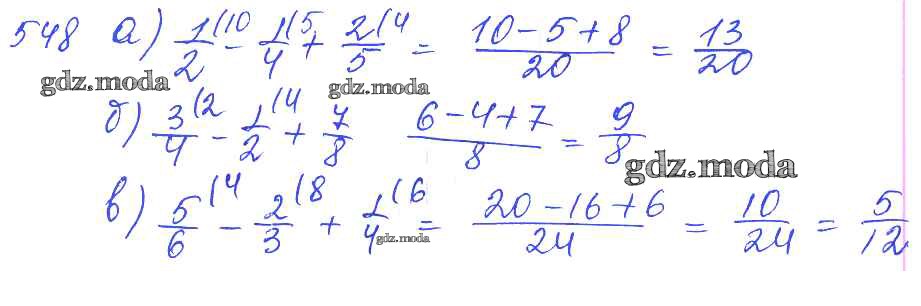 548 а) 1/2(10 - 1/4(5 + 2/5(4 = (10 - 5 + 8)/20 = 13/20
gdz.moda gdz.moda
б) 3/4(2 - 1/2(4 + 7/8 (6 - 4 + 7)/8 = 9/8
gdz.moda
в) 5/6(4 - 2/3(8 + 1/4(6 = (20 - 16 + 6)/24 = 10/24 = 5/12
gdz.moda